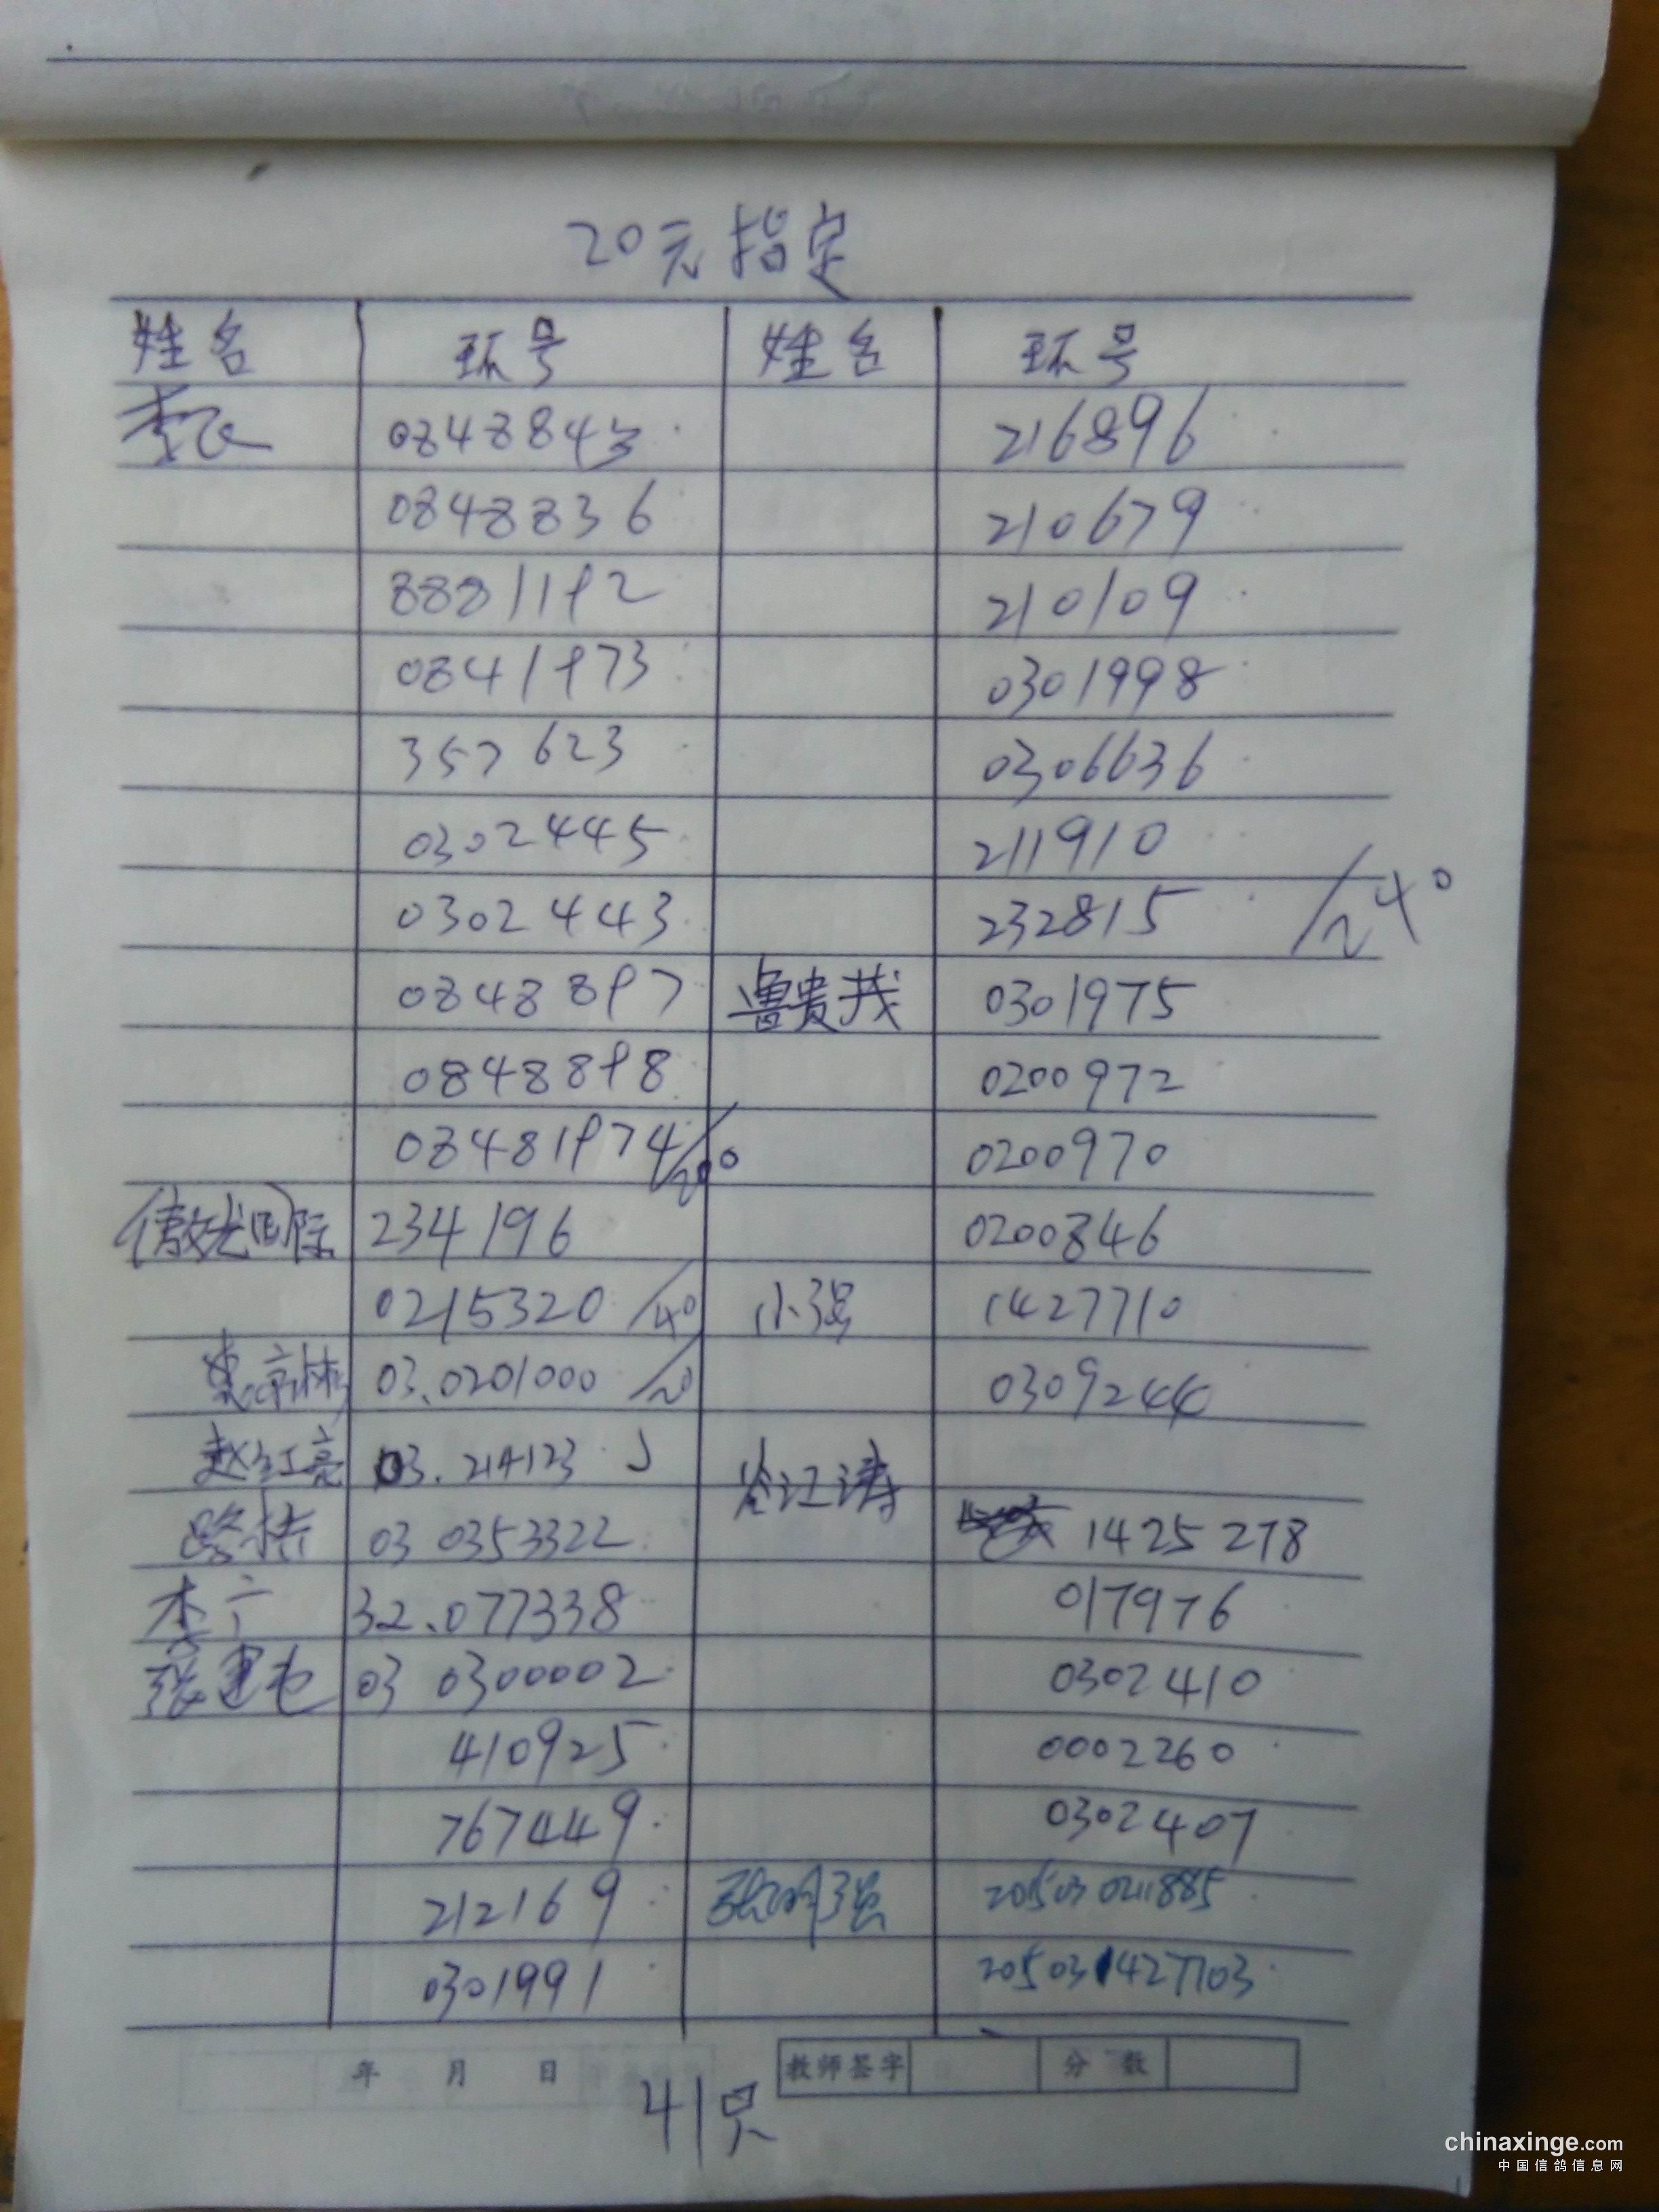 20元指定
姓名 环号 姓名 环号
0848843 216896
0848836 210679
8881192 210109
0841973 0301998
357623 0306636
0302445 211910
0302443 232815 /240
0848897 鲁贵找 0301975
0848898 0200972
08481974/200 0200970
傲龙国际 234196 0200846
0215320 /40 小强 1427710
03.0201000 /20 0309244
赵红亮 03.214123
路桥 03 0353322 1425278
李广 32.077338 017976
张建屯 03 0300002 0302410
410925 0002260
767449 0302407
212169 张明强 201503 0211885
0301991 201503 1427703
年 月 日 教师签字 分数
41只
chinaxinge.com
中国信鸽信息网